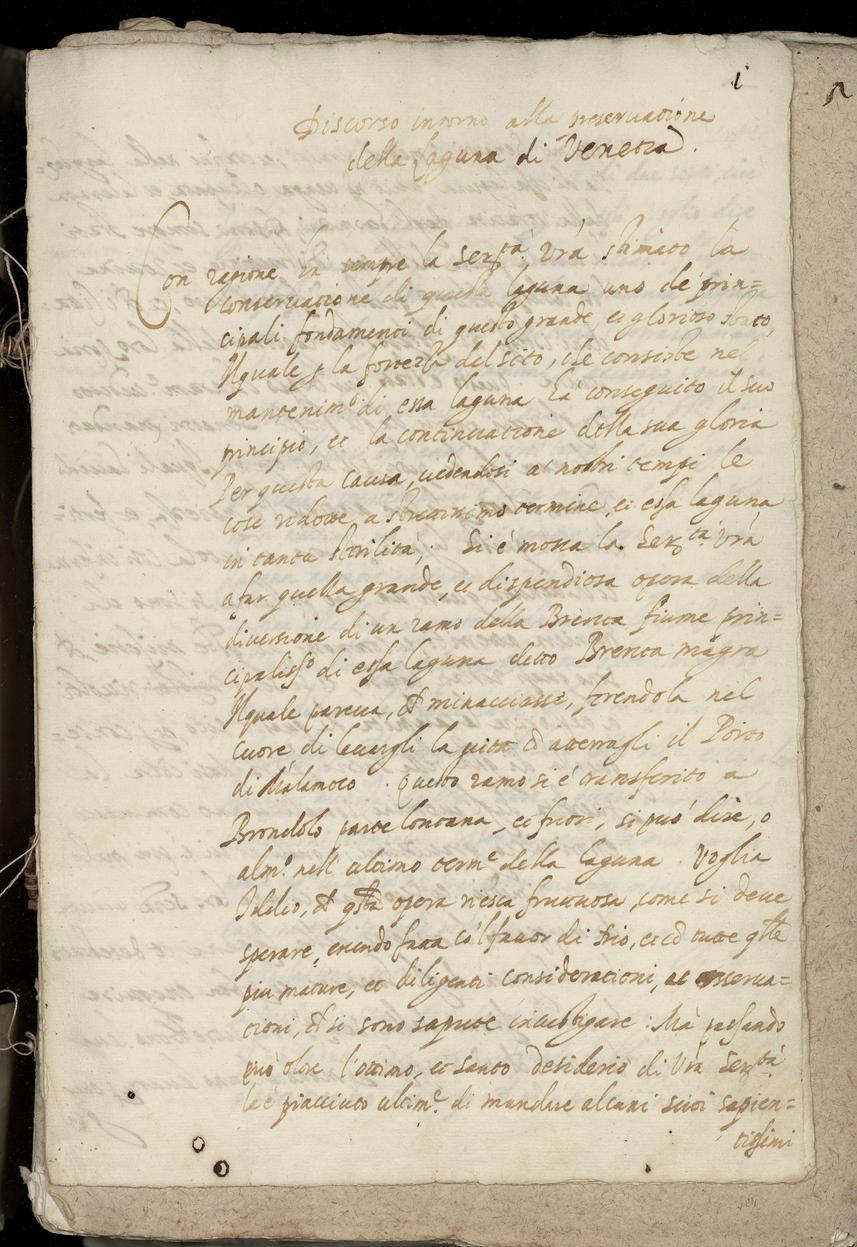 1
Discorso intorno alla preseruatione
della laguna di Venetia.
Con ragione hà sempre la Serta. Vrã stimato la
conseruatione di questa laguna uno de prin=
cipali fondamenti di questo grande et glorioso stato,
Ilquale p la fortezza del sito, che consiste nel
mantenimto di essa laguna hà conseguito il suo
principio, et la continuatione della sua gloria
Per questa causa, uedendosi a' nostri tempi le
cose ridotte a strettissimo termine, et essa laguna
in tanta sterilità, Si è mossa la Serta. Vrã
a far quella grande, et dispendiosa opera della
diuersione di un ramo della Brenta fiume prin=
cipalisso di essa laguna detto Brenta magra
Ilquale pareua, che minacciasse, ferendola nel
cuore di leuargli la uita et atterragli il Porto
di Malamoco. Questo ramo si è transferito a
Brondolo parte lontana, et fuori, si può dire, o
almo. nell' ultimo terme della laguna. Voglia
Iddio, che qsta opera riesca fruttuosa, come si deue
sperare, essendo fatta co'l fauor di Dio, et cõ tutte qlle
piu mature, et diligenti considerationi, et osserua=
tioni, che si sono sapute inuestigare: Mà passando
più oltre l'ottimo, et santo desiderio di Vrã Serta.
le è piacciuto ultime. di mandare alcuni suoi sapien=
tissimi